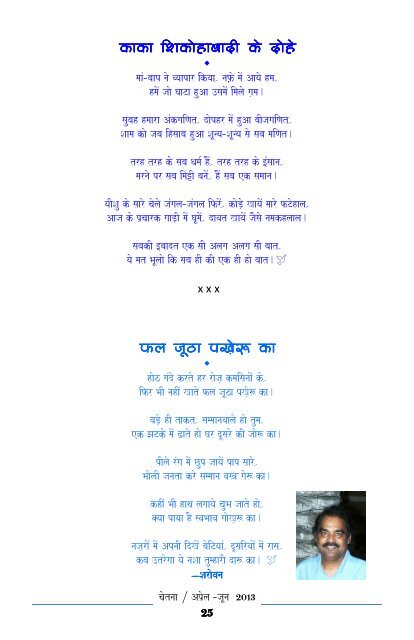 काका शिकोहाबादी के दोहे
मां-बाप ने व्यापार किया, नफ़े में आये हम,
हमें जो घाटा हुआ उसमें मिले ग़म।
सुबह हमारा अंकगणित, दोपहर में हुआ बीजगणित,
शाम को जब हिसाब हुआ शून्य-शून्य से सब मणित।
तरह तरह के सब धर्म हैं, तरह तरह के इंसान,
मरने पर सब मिट्टी बनें, हैं सब एक समान।
यीशु के सारे चेले जंगल-जंगल फिरें, कोड़े खायें मारे फटेहाल,
आज के प्रचारक गाड़ी में घूमें, दावत खायें जैसे नमकहलाल।
सबकी इबादत एक सी अलग अलग सी बात,
ये मत भूलो कि सब ही की एक ही हो बात।
x x x
फल जूठा पखेरू का
होठ गंदे करते हर रोज़ कमसिनों के,
फिर भी नहीं खाते फल जूठा पखेरू का।
बड़े ही ताकत, सम्मानवाले हो तुम,
एक झटके में ढाते हो घर दूसरे की जोरू का।
पीले रंग में छुप जायें पाप सारे,
भोली जनता करे सम्मान वस्त्र गेरू का।
कहीं भी हाथ लगाये चुभ जाते हो,
क्या पाया है स्वभाव गोखरू का।
नज़रों में अपनी दिखें बेटियां, दूसरियों में रास,
कब उतरेगा ये नशा तुम्हारी दारू का।
—शरोवन
चेतना / अप्रेल -जून 2013
25